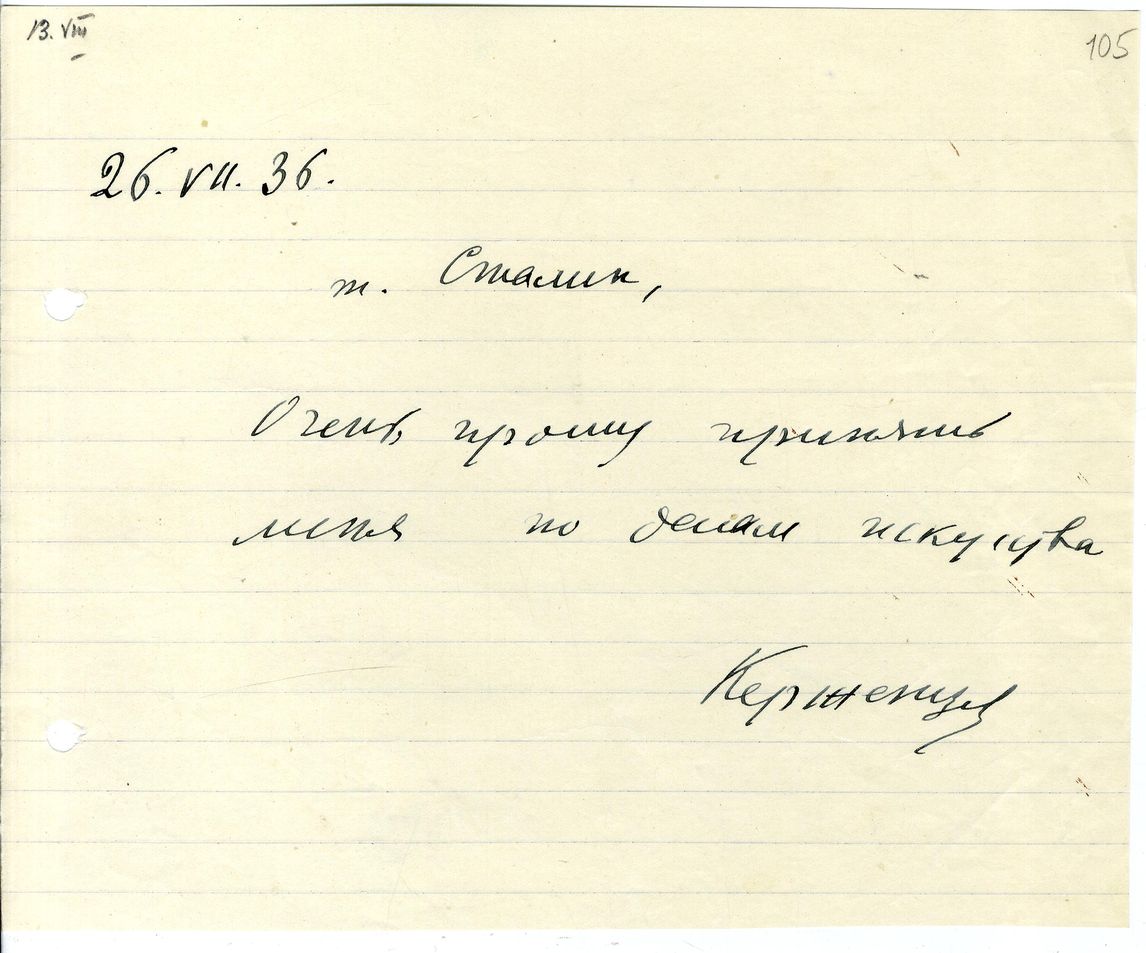 13. VIII
105
26. VII. 36.
т. Сталин,
Очень прошу принять
меня по делам искусства
Керженцев